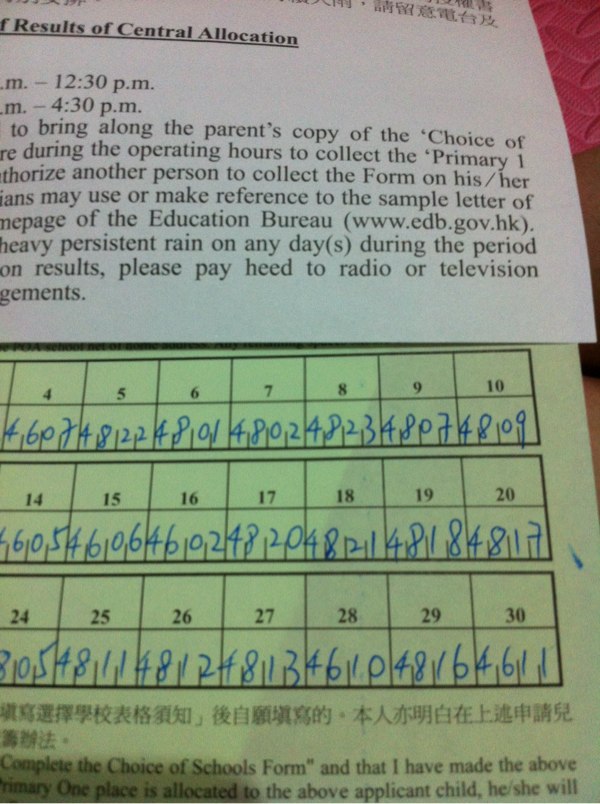 請留意電台及
f Results of Central Allocation
.m. – 12:30 p.m.
.m. – 4:30 p.m.
to bring along the parent's copy of the 'Choice of
re during the operating hours to collect the 'Primary 1
thorize another person to collect the Form on his/her
ians may use or make reference to the sample letter of
mepage of the Education Bureau (www.edb.gov.hk).
heavy persistent rain on any day(s) during the period
on results, please pay heed to radio or television
gements.
4 5 6 7 8 9 10
4607 4822 4801 4802 4823 4807 4809
14 15 16 17 18 19 20
4605 4606 4602 4820 4821 4818 4817
24 25 26 27 28 29 30
805 4811 4812 4813 4610 4816 4611
填寫選擇學校表格須知」後自願填寫的。本人亦明白在上述申請兒
籌辦法。
Complete the Choice of Schools Form" and that I have made the above
Primary One place is allocated to the above applicant child, he/she will